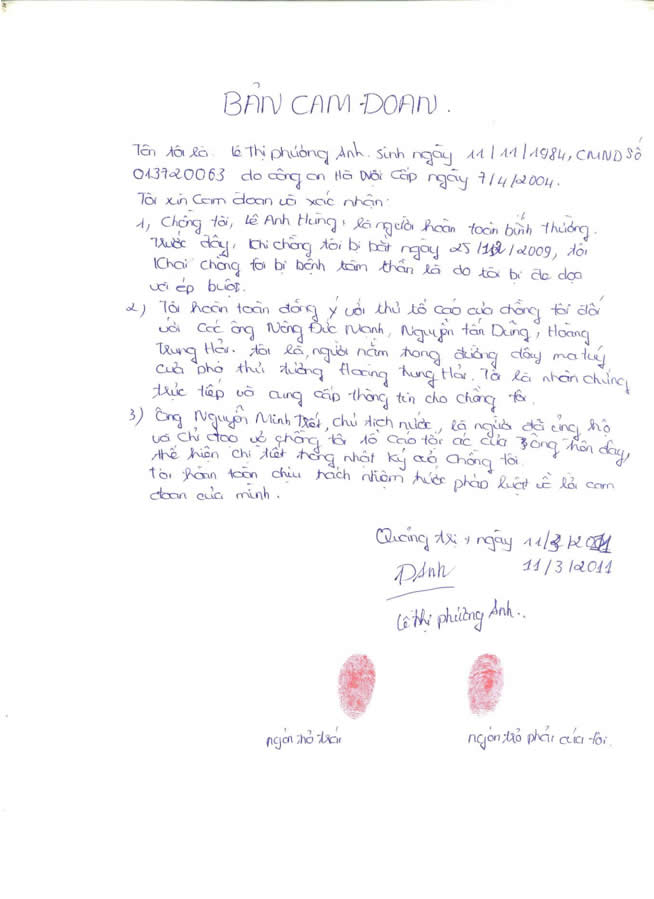 BẢN CAM ĐOAN.
Tên tôi là. Lê Thị phương Anh. sinh ngày 11/11/1984, CMND Số
013720063 do công an Hà Nội Cấp ngày 7/4/2004.
Tôi xin Cam đoan và xác nhận:
1, Chồng tôi, Lê Anh Hùng, là người hoàn toàn bình thường.
Trước đây, khi chồng tôi bị bắt ngày 25/12/2009, tôi
Khai chồng tôi bị bệnh tâm thần là do tôi bị đe dọa
và ép buộc.
2) Tôi hoàn toàn đồng ý với thư tố cáo của chồng tôi đối
với Các ông Nông Đức Mạnh, Nguyễn Tấn Dũng, Hoàng
Trung Hải. tôi là, người nằm trong đường dây ma túy
của phó thủ tướng Hoàng Trung Hải. Tôi là nhân chứng
trực tiếp và cung cấp thông tin cho chồng tôi.
3) Ông Nguyễn Minh Triết, chủ tịch nước, là người đã ủng hộ
và Chỉ đạo vợ chồng tôi tố Cáo tội ác của 3 ông trên đây,
thể hiện chi tiết trong nhật ký của Chồng tôi.
Tôi hoàn toàn chịu trách nhiệm trước pháp luật về lời cam
đoan của mình.
Quảng Trị, ngày 11/3/2011
11/3/2011
PAnh
Lê Thị phương Anh..
ngón trỏ trái
ngón trỏ phải của tôi.